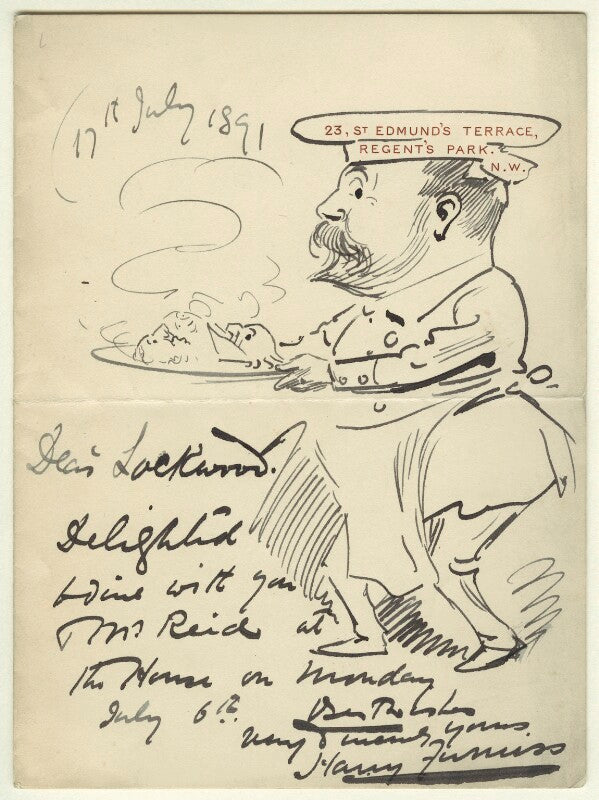 17th July 1891
23, ST EDMUND'S TERRACE,
REGENT'S PARK.
N.W.
Dear Lockwood.
Delighted
to dine with you
& Mr Reid at
the House on Monday
July 6th.
Best Wishes
Very sincerely yours
Harry Furniss